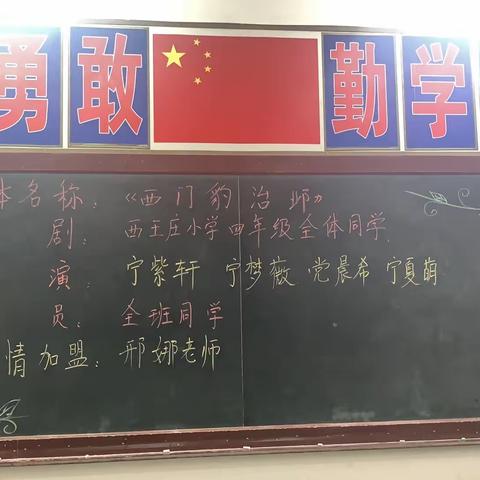 勇敢 勤学
本名称：《西门豹治邺》
剧：西王庄小学四年级全体同学.
演：宁紫轩 宁梦薇 党晨希 宁夏萌
员：全班同学
情加盟：邢娜老师